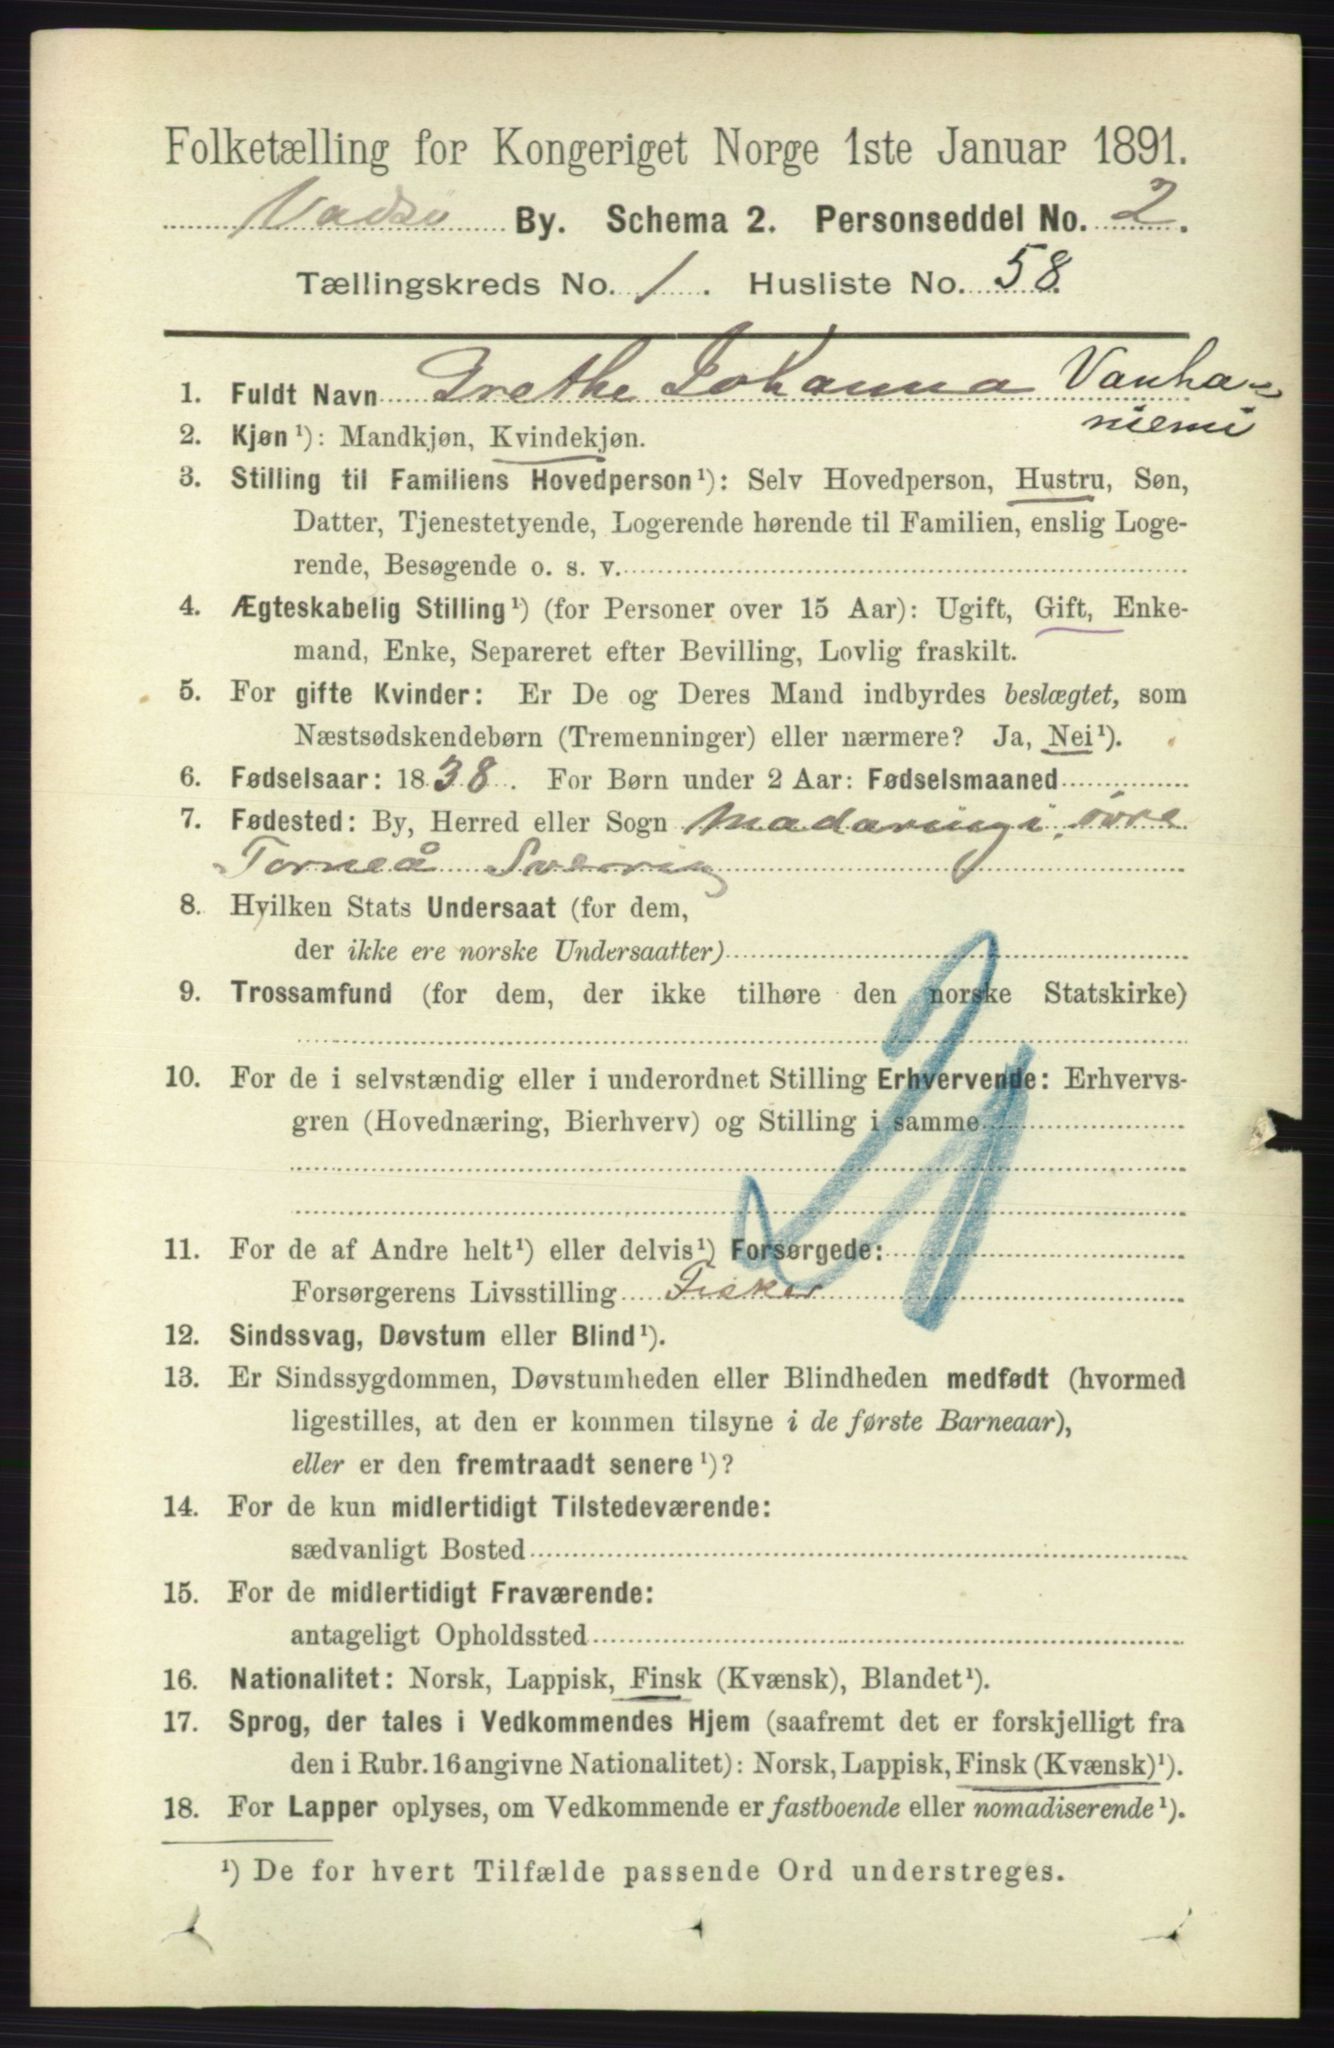 Folketælling for Kongeriget Norge 1ste Januar 1891.
Vadsø By. Schema 2. Personseddel No. 2.
Tællingskreds No. 1. Husliste No. 58.
1. Fuldt Navn Grethe Johanna Vanha-
niemi
2. Kjøn¹): Mandkjøn, Kvindekjøn.
3. Stilling til Familiens Hovedperson¹): Selv Hovedperson, Hustru, Søn,
Datter, Tjenestetyende, Logerende hørende til Familien, enslig Loge-
rende, Besøgende o. s. v.
4. Ægteskabelig Stilling¹) (for Personer over 15 Aar): Ugift, Gift, Enke-
mand, Enke, Separeret efter Bevilling, Lovlig fraskilt.
5. For gifte Kvinder: Er De og Deres Mand indbyrdes beslægtet, som
Næstsødskendebørn (Tremenninger) eller nærmere? Ja, Nei¹).
6. Fødselsaar: 1838. For Børn under 2 Aar: Fødselsmaaned
7. Fødested: By, Herred eller Sogn Madaringi, övre
Torneå Sverrig
8. Hvilken Stats Undersaat (for dem,
der ikke ere norske Undersaatter)
9. Trossamfund (for dem, der ikke tilhøre den norske Statskirke)
10. For de i selvstændig eller i underordnet Stilling Erhvervende: Erhvervs-
gren (Hovednæring, Bierhverv) og Stilling i samme
21
11. For de af Andre helt¹) eller delvis¹) Forsørgede:
Forsørgerens Livsstilling Fisker
12. Sindssvag, Døvstum eller Blind¹).
13. Er Sindssygdommen, Døvstumheden eller Blindheden medfødt (hvormed
ligestilles, at den er kommen tilsyne i de første Barneaar),
eller er den fremtraadt senere¹)?
14. For de kun midlertidigt Tilstedeværende:
sædvanligt Bosted
15. For de midlertidigt Fraværende:
antageligt Opholdssted
16. Nationalitet: Norsk, Lappisk, Finsk (Kvænsk), Blandet¹).
17. Sprog, der tales i Vedkommendes Hjem (saafremt det er forskjelligt fra
den i Rubr. 16 angivne Nationalitet): Norsk, Lappisk, Finsk (Kvænsk)¹).
18. For Lapper oplyses, om Vedkommende er fastboende eller nomadiserende¹).
¹) De for hvert Tilfælde passende Ord understreges.